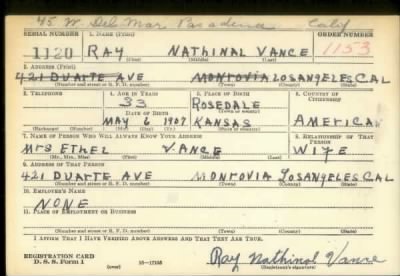 45 W. Del Mar Pasadena Calif
SERIAL NUMBER 1. NAME (Print) ORDER NUMBER
1120 RAY NATHINAL VANCE 1153
(First) (Middle) (Last)
2. ADDRESS (Print)
421 DUARTE AVE MONROVIA LOS ANGELES CAL
(Number and street or R. F. D. number) (Town) (County) (State)
3. TELEPHONE 4. AGE IN YEARS 5. PLACE OF BIRTH 6. COUNTRY OF CITIZENSHIP
33 ROSEDALE
DATE OF BIRTH (Town or county)
MAY 6 1907 KANSAS AMERICAN
(Exchange) (Number) (Mo.) (Day) (Yr.) (State or country)
7. NAME OF PERSON WHO WILL ALWAYS KNOW YOUR ADDRESS 8. RELATIONSHIP OF THAT PERSON
MRS ETHEL VANCE WIFE
(Mr., Mrs., Miss) (First) (Middle) (Last)
9. ADDRESS OF THAT PERSON
421 DUARTE AVE MONROVIA LOS ANGELES CAL
(Number and street or R. F. D. number) (Town) (County) (State)
10. EMPLOYER'S NAME
NONE
11. PLACE OF EMPLOYMENT OR BUSINESS
(Number and street or R. F. D. number) (Town) (County) (State)
I AFFIRM THAT I HAVE VERIFIED ABOVE ANSWERS AND THAT THEY ARE TRUE.
REGISTRATION CARD
D. S. S. Form 1 (over) 16—17105 Ray Nathinal Vance
(Registrant's signature)